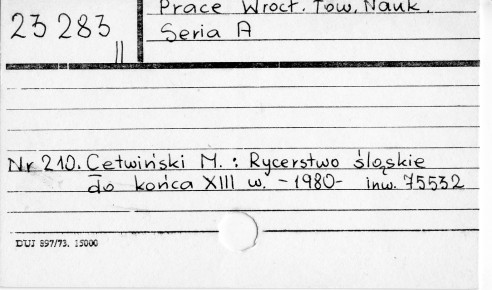 23 283
II
Prace Wrocł. Tow. Nauk.
Seria A
Nr 210. Cetwiński M. : Rycerstwo śląskie
do końca XIII w. -1980- inw. 75532
DUJ 897/73. 15000